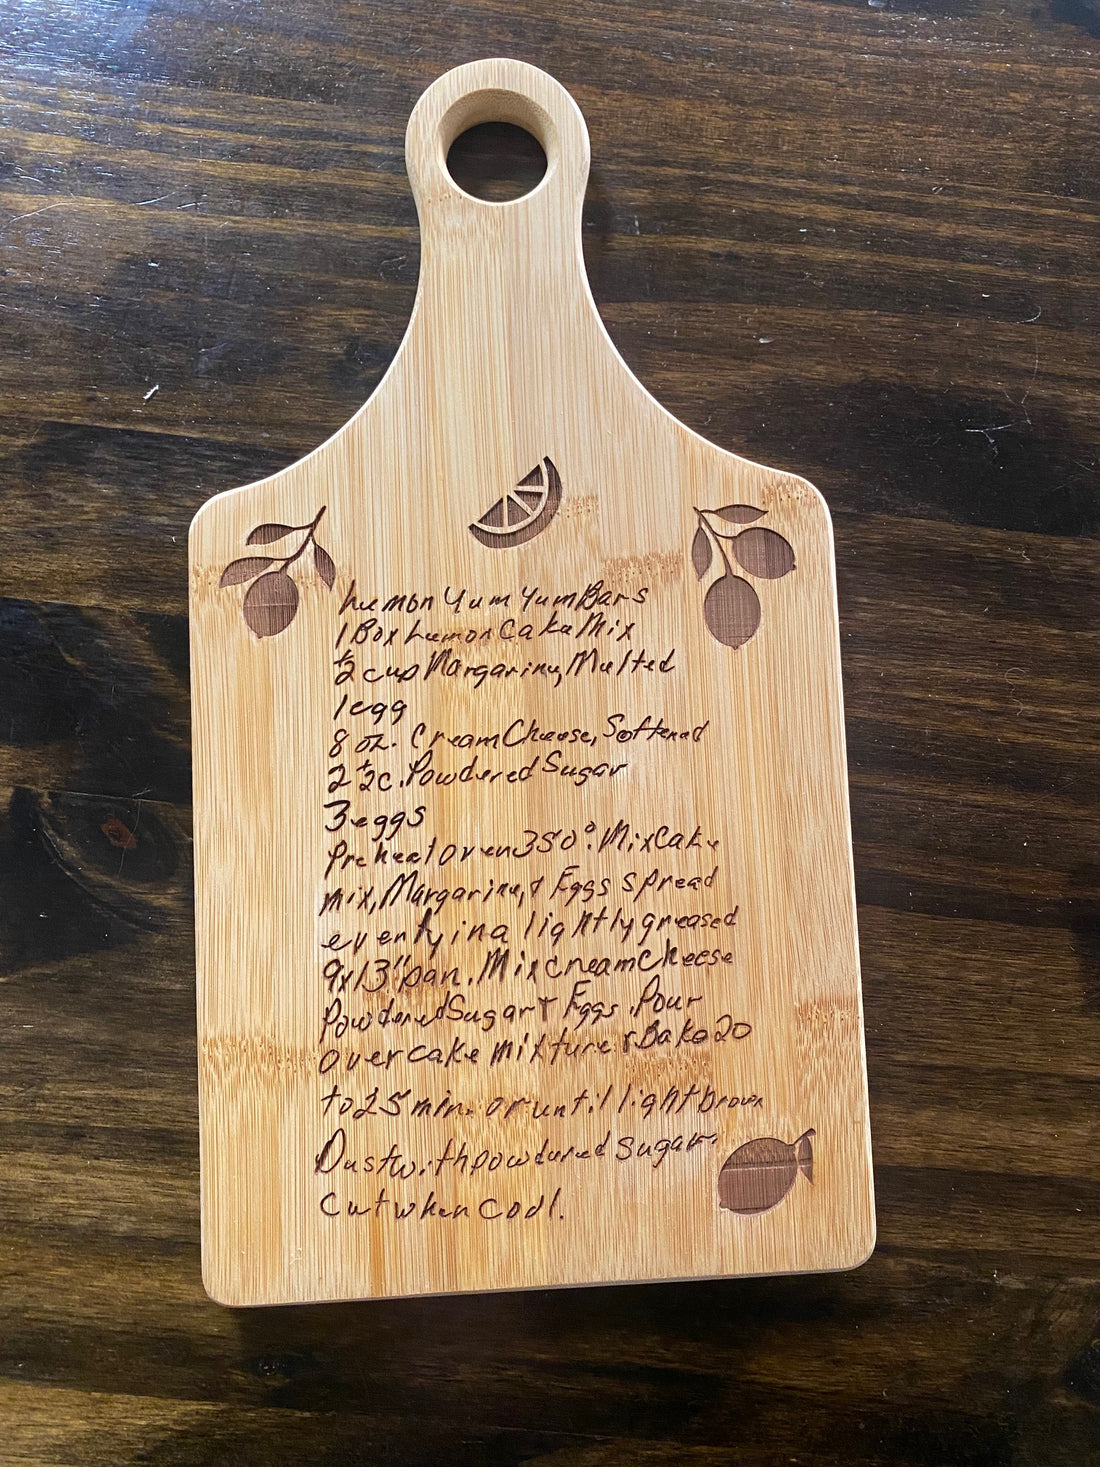 Lemon Yum Yum Bars
1 Box Lemon Cake Mix
1/2 cup Margarine, Melted
1 egg
8 oz. Cream Cheese, Softened
2 1/2 c. Powdered Sugar
3 eggs
Preheat Oven 350°. Mix Cake
mix, Margarine, & Eggs spread
evenly in a lightly greased
9x13" pan. Mix cream cheese
Powdered Sugar + Eggs. Pour
over cake mixture & Bake 20
to 25 min. or until light brown
Dust with powdered sugar.
Cut when cool.